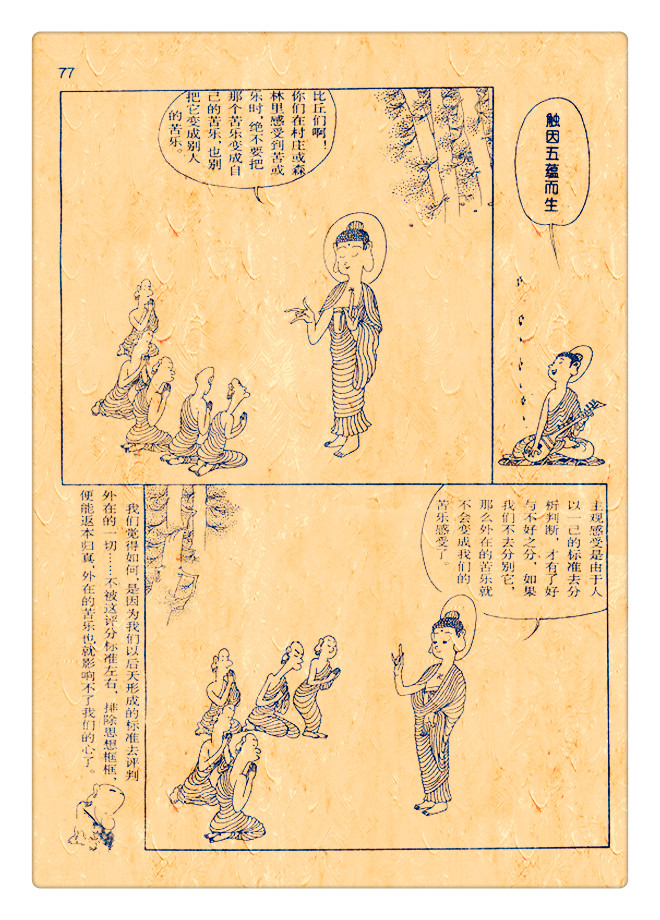 77
触因五蕴而生
比丘们啊！
你们在村庄或森
林里感受到苦或
乐时，绝不要把
那个苦乐变成自
己的苦乐，也别
把它变成别人
的苦乐。
主观感受是由于人
以一己的标准去分
析判断，才有了好
与不好之分，如果
我们不去分别它，
那么外在的苦乐就
不会变成我们的
苦乐感受了。
我们觉得如何，是因为我们以后天形成的标准去评判
外在的一切……不被这评分标准左右，排除思想框框，
便能返本归真，外在的苦乐也就影响不了我们的心了。